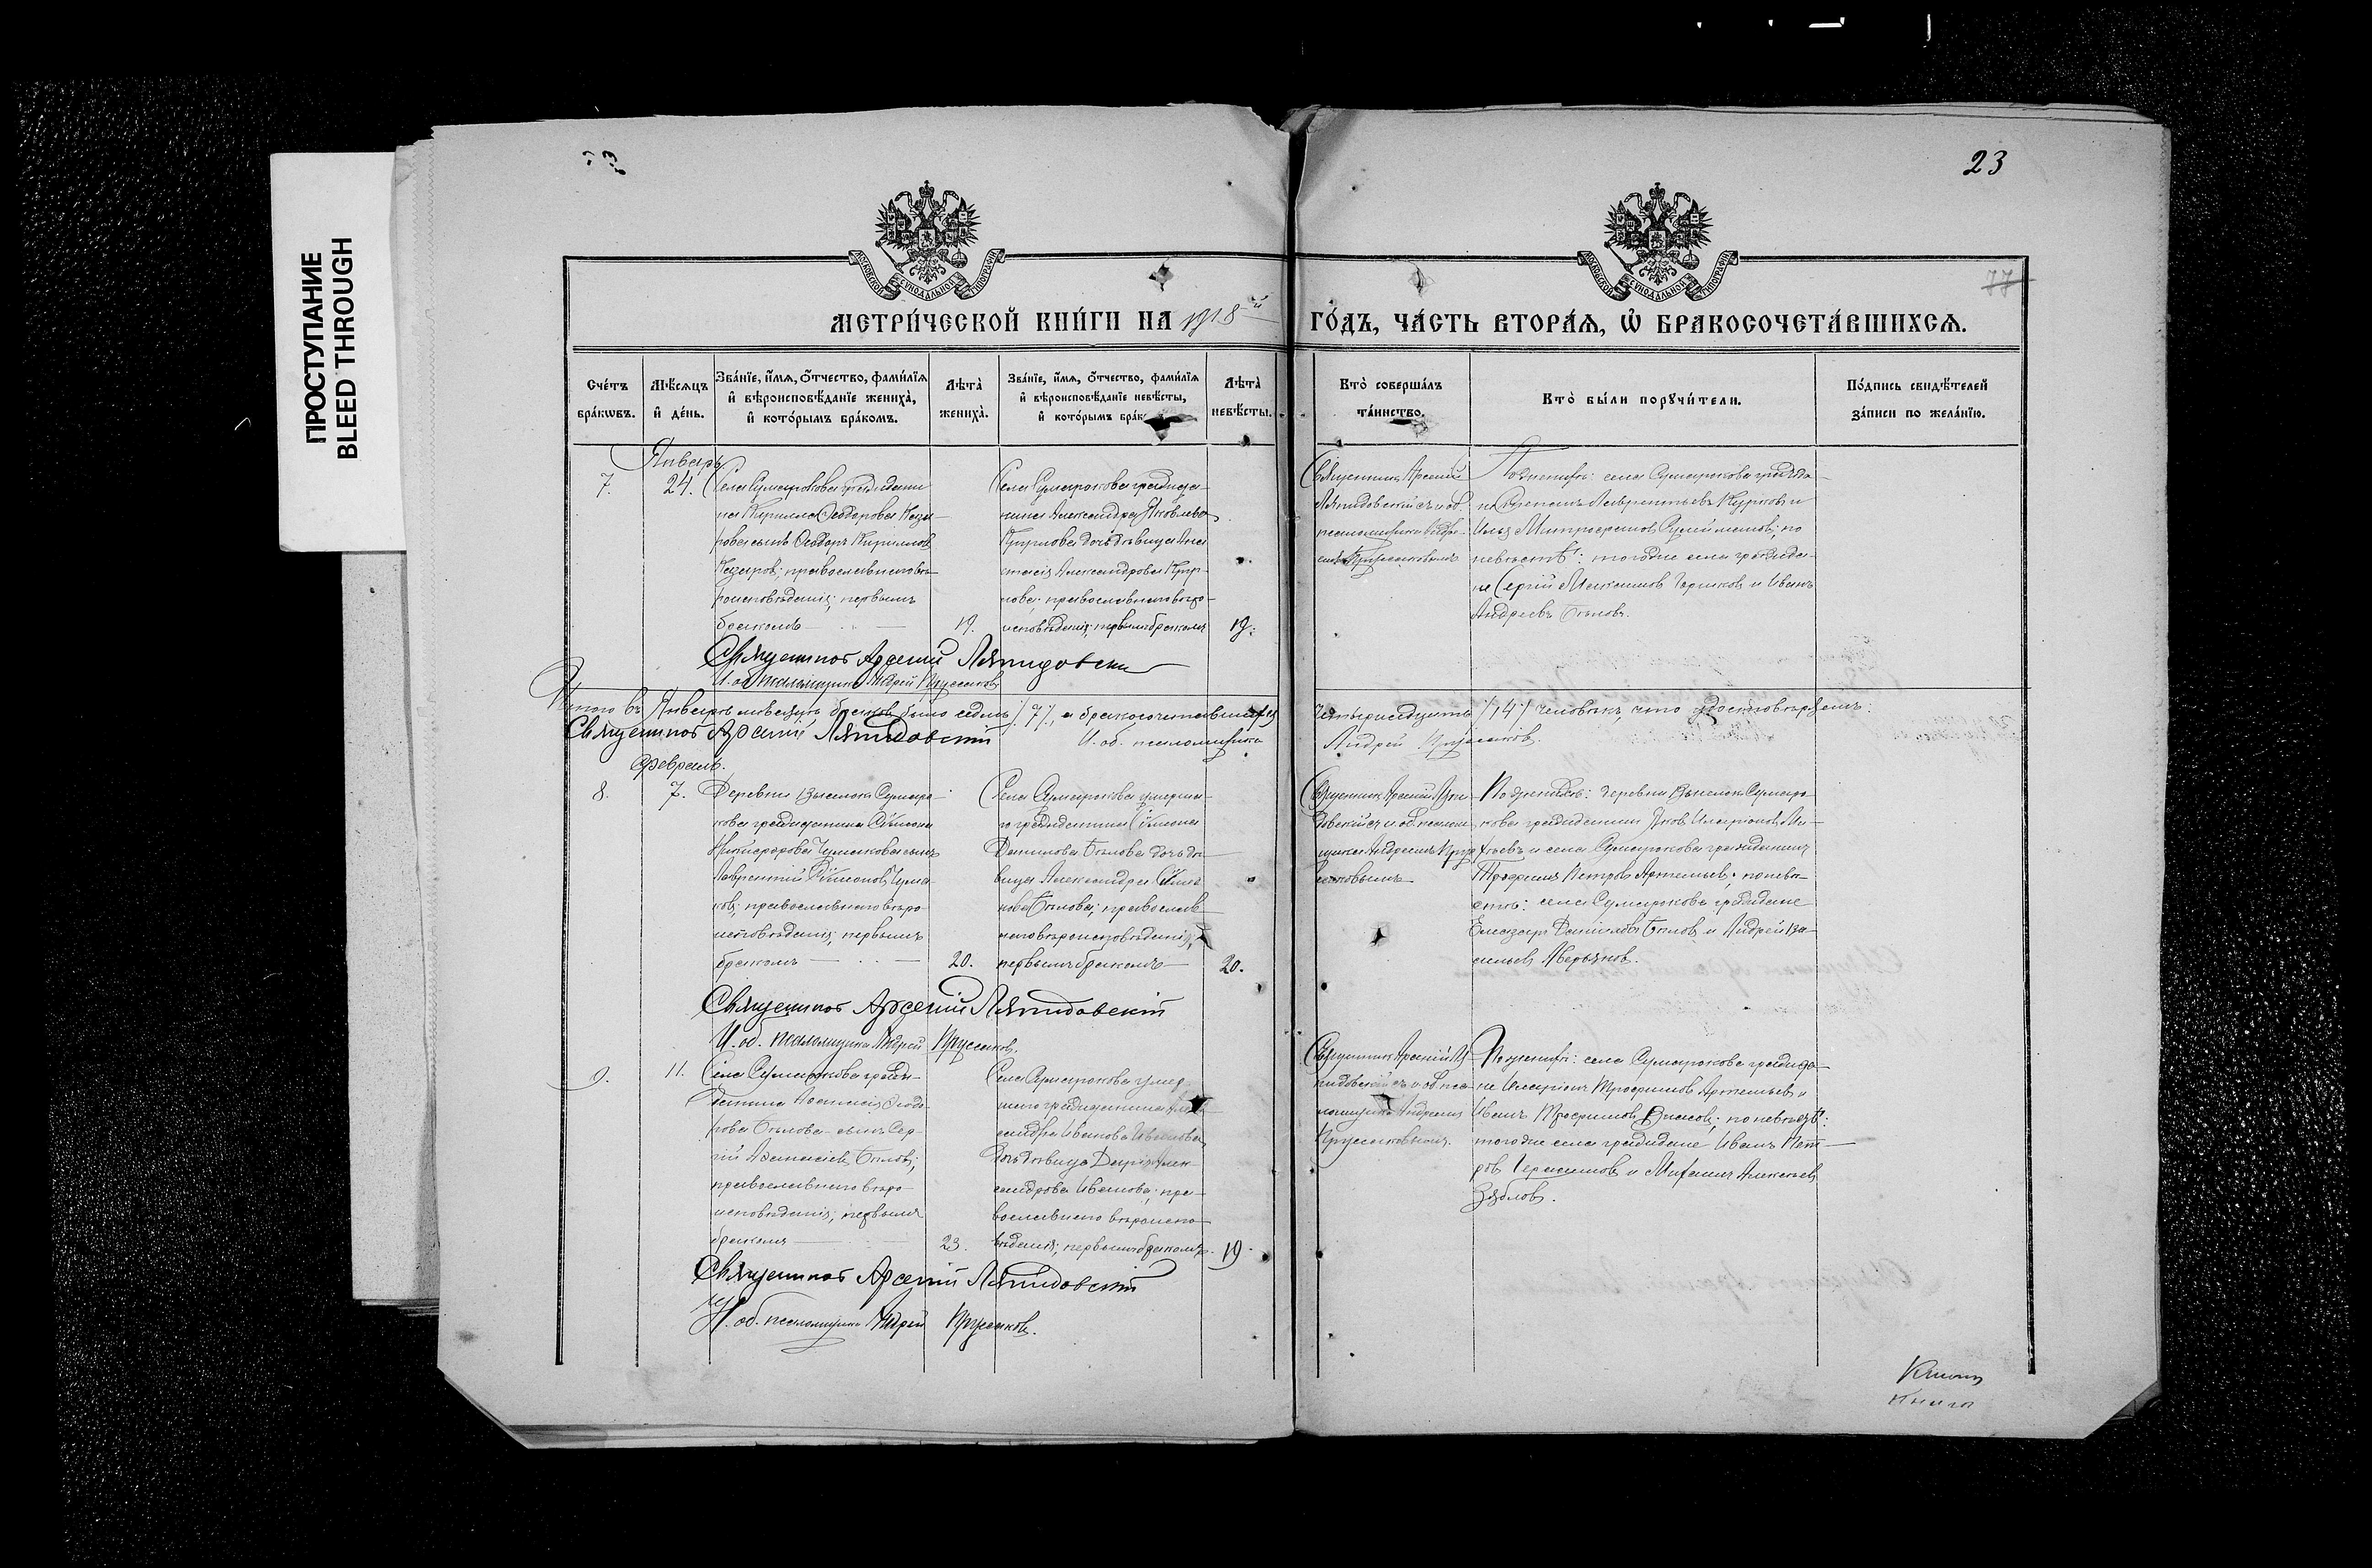 ПРОСТУПАНИЕ
BLEED THROUGH
23
77
МОСКОВСКОЙ СѴНОДАЛЬНОЙ ТИПОГРАФІИ
МОСКОВСКОЙ СѴНОДАЛЬНОЙ ТИПОГРАФІИ
МЕТРИ́ЧЕСКОЙ КНИ́ГИ НА 1918й ГО́ДЪ, ЧА́СТЬ ВТОРА́Я, Ѡ БРАКОСОЧЕТА́ВШИХСЯ.
Сче́тъ бра́кѡвъ.
Мѣ́сяцъ и҆ де́нь.
Зва́нїе, и҆́мя, ѻ҆́тчество, фами́лїя и҆ вѣроисповѣ́данїе жениха̀, и҆ кото́рымъ бра́комъ.
Лѣта̀ жениха̀.
Зва́нїе, и҆́мя, ѻ҆́тчество, фами́лїя и҆ вѣроисповѣ́данїе невѣ́сты, и҆ кото́рымъ бра́к
Лѣта̀ невѣ́сты.
Кто̀ соверша́лъ та́инство.
Кто̀ бы́ли порꙋчи́тели.
По́дпись свидѣ́телей за́писи по жела́нїю.
Январь
7.
24.
Села Сумарокова граждани
на Кирилла Ѳеодорова Каза
рова сынъ Ѳеодоръ Кириллов
Казаров; православнаго вѣ
роисповѣданія; первымъ
бракомъ
19.
Села Сумарокова гражда
нина Александра Яковлева
дочь дѣвица Ана
стасія Александрова
православнаго вѣро
исповѣданія; первымъ бракомъ
19.
Священникъ Арсеній
Ляпидовскій съ и. об.
псаломщика Андре
емъ Прусаковымъ
По женихѣ: села Сумарокова гражда
не Степанъ Лаврентьевъ Курков и
Илья Митрофанов по
невѣстѣ: того же села гражда
не Сергій Максимов и Иванъ
Андреевъ Бѣловъ.
Священникъ Арсеній Ляпидовскій
И. об. псаломщика Андрей Прусаков
Итого въ Январѣ мѣсяцѣ браков было семь /7/, а бракосочетавшихся
четырнадцать /14/ человѣкъ, что удостовѣряемъ:
Священникъ Арсеній Ляпидовскій
И. об. псаломщика
Андрей Прусаков.
Февраль.
8.
7.
Деревни Выселок Сумаро
кова гражданина Симеона
Никифорова Чумакова сынъ
Лаврентій Симеонов Чума
ков; православнаго вѣро
исповѣданія; первымъ
бракомъ
20.
Села Сумарокова умерша
го гражданина Симеона
Данилова Бѣлова дочь дѣ
вица Александра Симео
нова Бѣлова; православ
наго вѣроисповѣданія,
первымъ бракомъ
20.
Священникъ Арсеній Ляпи
довскій съ и. об. псалом
щика Андреемъ Пру
саковымъ
По женихѣ: деревни Выселок Сумаро
кова гражданин Яков Иларіонов Ми
хѣевъ и села Сумарокова гражданин
Трофим Петров Артемьев; по невѣ
стѣ: села Сумарокова граждане
Елеазаръ Данилов Бѣлов и Андрей Ва
сильев Аверьянов.
Священникъ Арсеній Ляпидовскій
И. об. псаломщика Андрей Прусаков.
9.
11.
Села Сумарокова граж
данина Аѳанасія Ѳеодо
рова Бѣлова сынъ Сер
гій Аѳанасіев Бѣлов;
православнаго вѣро
исповѣданія; первымъ
бракомъ
23.
Села Сумарокова умер
шаго гражданина Алек
сандра Иванова Иванова
дочь дѣвица Дарія Алек
сандрова Иванова; пра
вославнаго вѣроиспо
вѣданія; первымъ бракомъ.
19.
Священникъ Арсеній Ля
пидовскій съ и. об. пса
ломщика Андреемъ
Прусаковымъ.
По женихѣ: села Сумарокова гражда
не Иларіон Трофимов Артемьев и
Иван Трофимов Власов; по невѣстѣ:
того же села граждане Иван Пет
ров Герасимов и Михаил Алексѣев
Зяблов.
Священникъ Арсеній Ляпидовскій
И. об. псаломщика Андрей Прусаков.
Книга